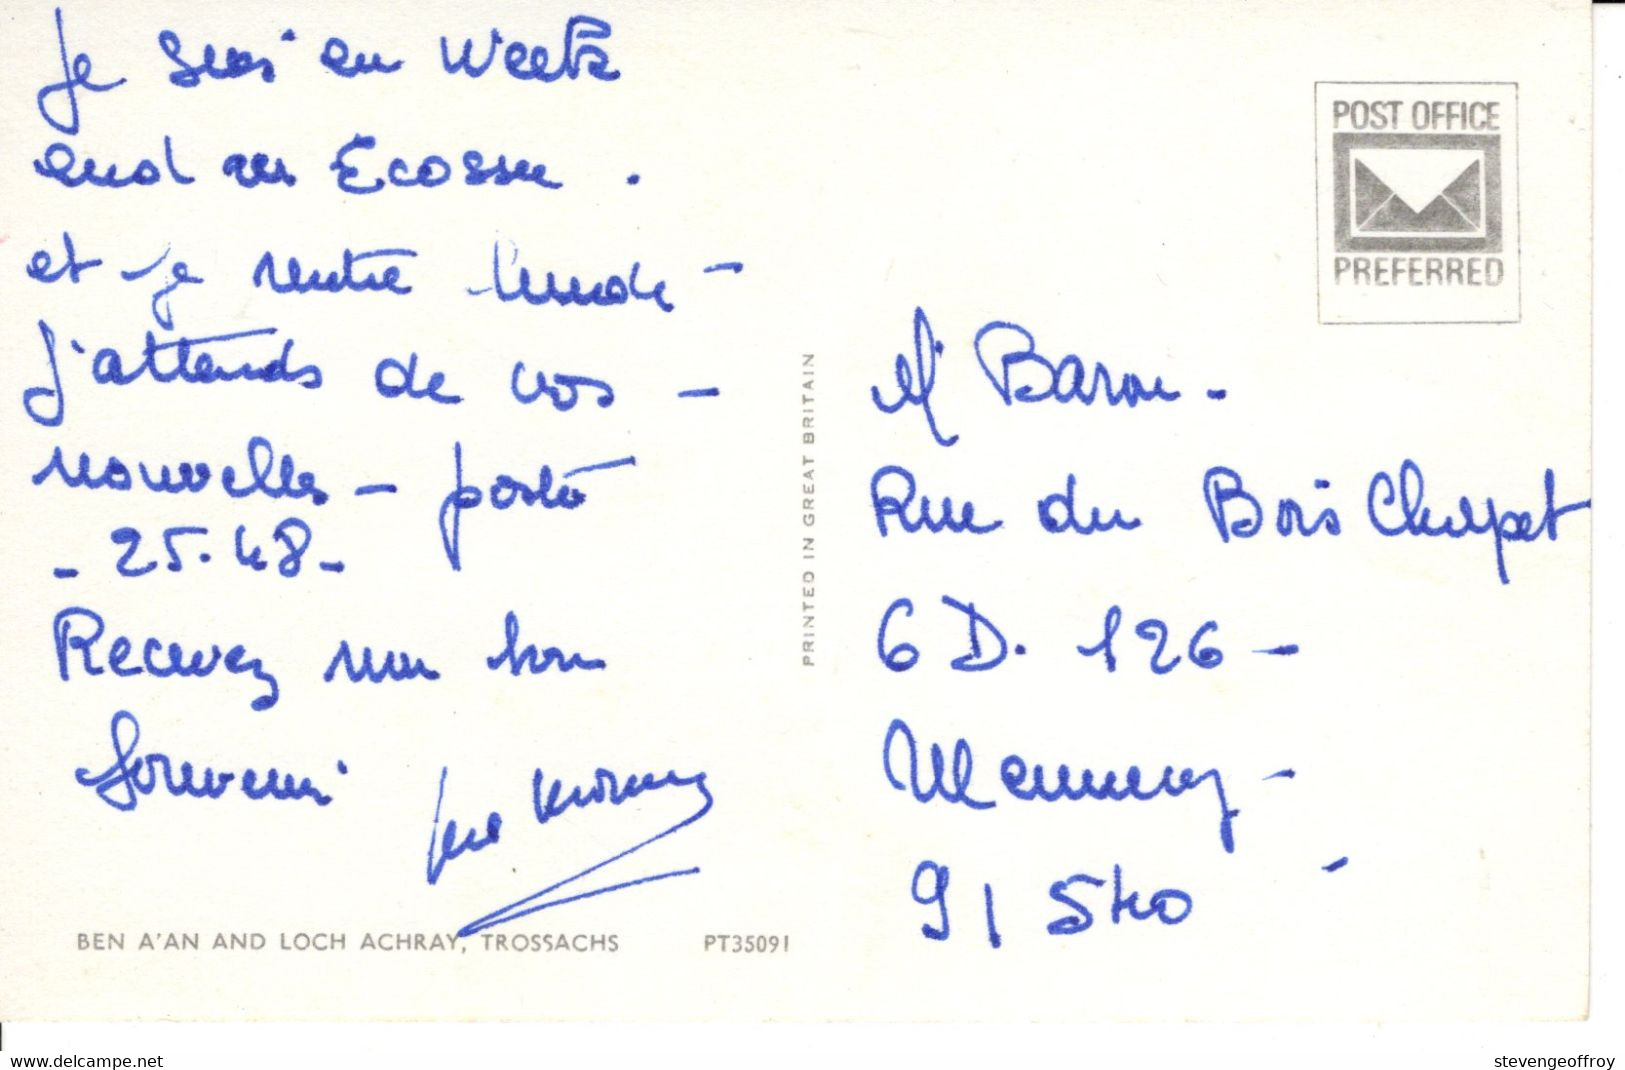 Je suis en Week
end en Ecosse.
et je rentre lundi -
J'attends de vos -
nouvelles - poste
- 25.48 -
Recevez mon bon
souvenir
BEN A'AN AND LOCH ACHRAY, TROSSACHS PT35091
PRINTED IN GREAT BRITAIN
POST OFFICE
PREFERRED
Mr Baron -
Rue du Bois Chapet
6 D. 126 -
Mennecy -
91540 -
www.delcampe.net
stevengeoffroy